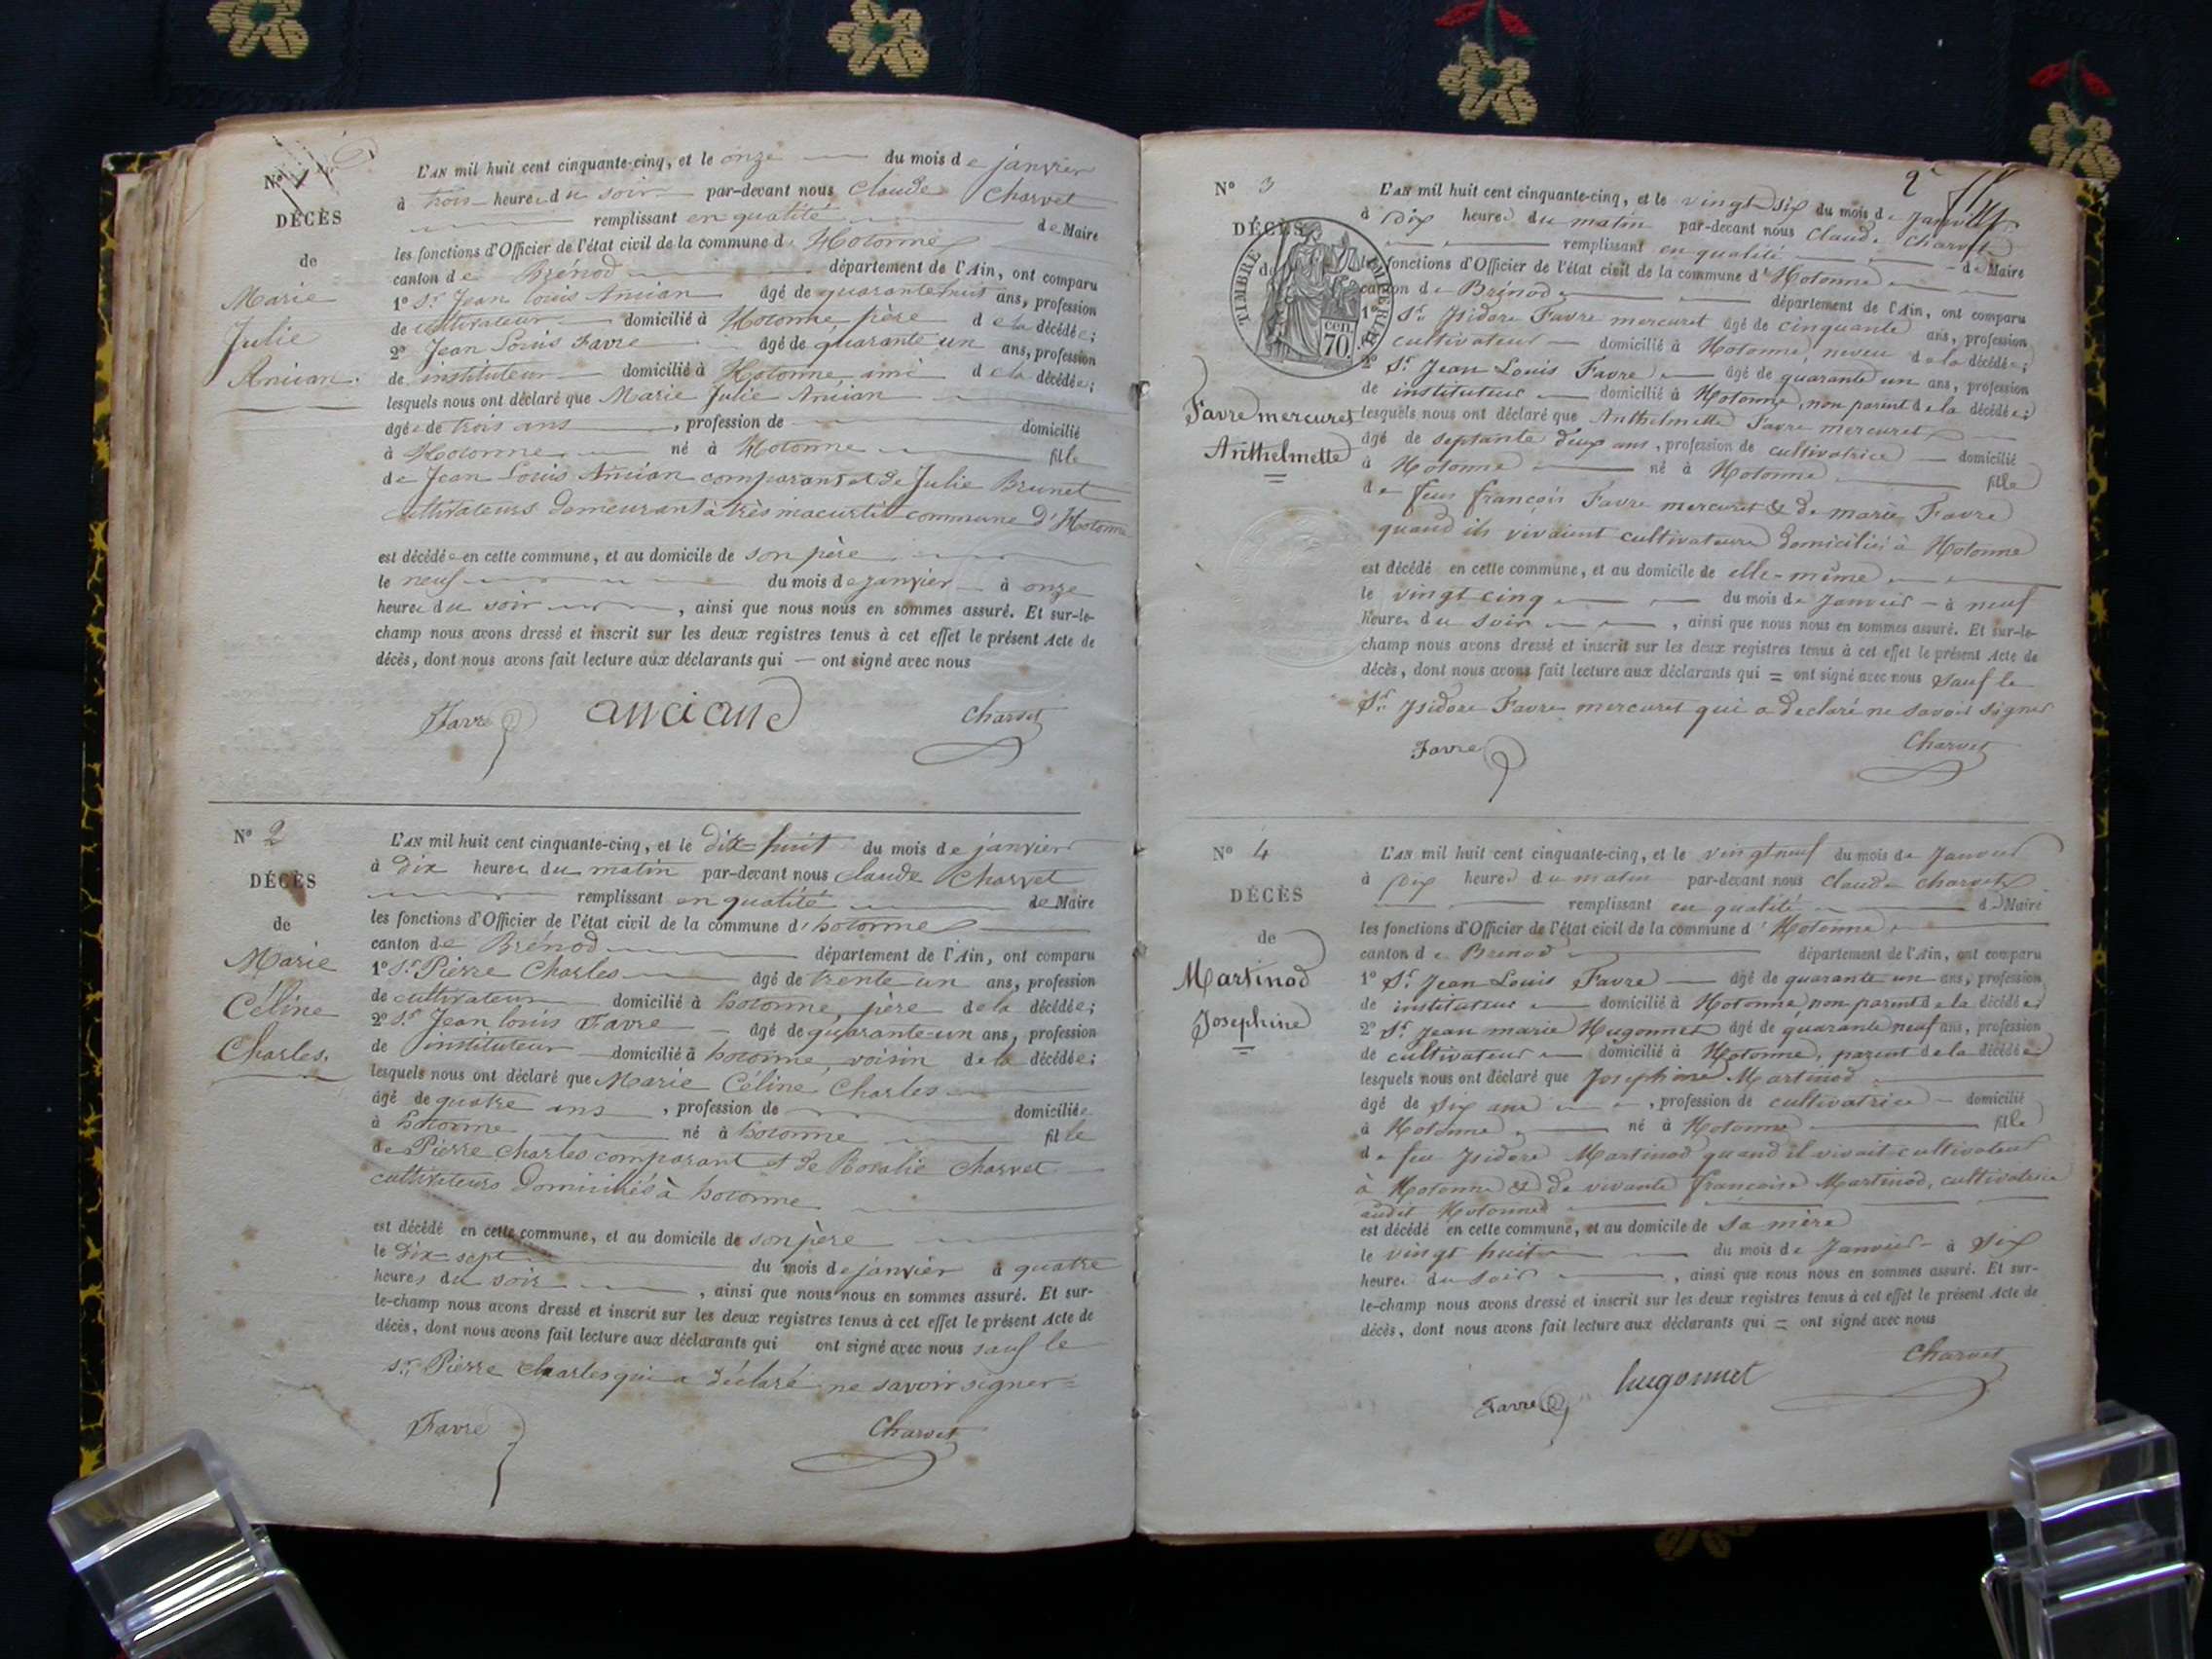 N° 1
DÉCÈS
de
Marie
Julie
Ancian.
L'AN mil huit cent cinquante-cinq, et le onze du mois de janvier
à trois heures du soir par-devant nous Claude Charvet
remplissant en qualité de Maire
les fonctions d'Officier de l'état civil de la commune d' Hotonnes
canton de Brénod département de l'Ain, ont comparu
1° Sr. Jean Louis Ancian âgé de quarante huit ans, profession
de cultivateur domicilié à Hotonne, père de la décédée;
2° Jean Louis Favre âgé de quarante un ans, profession
de instituteur domicilié à Hotonne, ami de la décédée;
lesquels nous ont déclaré que Marie Julie Ancian
âgée de trois ans, profession de domicilié
à Hotonne né à Hotonne fille
de Jean Louis Ancian comparant et de Julie Brunet
cultivateurs demeurant à commune d'Hotonne
est décédée en cette commune, et au domicile de son père
le neuf du mois de janvier à onze
heures du soir, ainsi que nous nous en sommes assuré. Et sur-le-
champ nous avons dressé et inscrit sur les deux registres tenus à cet effet le présent Acte de
décès, dont nous avons fait lecture aux déclarants qui — ont signé avec nous
Favre anciand Charvet
N° 2
DÉCÈS
de
Marie
Céline
Charles.
L'AN mil huit cent cinquante-cinq, et le dix-huit du mois de janvier
à dix heures du matin par-devant nous Claude Charvet
remplissant en qualité de Maire
les fonctions d'Officier de l'état civil de la commune d' hotonnes
canton de Brénod département de l'Ain, ont comparu
1° Sr. Pierre Charles âgé de trente un ans, profession
de cultivateur domicilié à hotonne, père de la décédée;
2° Sr. Jean louis Favre âgé de quarante-un ans, profession
de instituteur domicilié à hotonne, voisin de la décédée;
lesquels nous ont déclaré que Marie Céline Charles
âgé de quatre ans, profession de domiciliée
à hotonne né à hotonne fille
de Pierre Charles comparant et de Rosalie Charvet
cultivateurs domiciliés à hotonne
est décédé en cette commune, et au domicile de son père
le dix-sept du mois de janvier à quatre
heures du soir, ainsi que nous nous en sommes assuré. Et sur-
le-champ nous avons dressé et inscrit sur les deux registres tenus à cet effet le présent Acte de
décès, dont nous avons fait lecture aux déclarants qui ont signé avec nous sauf le
sr. Pierre Charles qui a déclaré ne savoir signer =
Favre Charvet
2
N° 3
DÉCÈS
de
TIMBRE IMPERIAL
cen. 70.
Favre mercuret
Anthelmette
L'AN mil huit cent cinquante-cinq, et le vingt six du mois de Janvier
à dix heures du matin par-devant nous Claude Charvet
remplissant en qualité de Maire
les fonctions d'Officier de l'état civil de la commune d' Hotonne
canton de Brénod département de l'Ain, ont comparu
1° Sr. Isidore Favre mercuret âgé de cinquante ans, profession
cultivateur domicilié à Hotonne, neveu de la décédée;
2° Sr. Jean Louis Favre âgé de quarante un ans, profession
de instituteur domicilié à Hotonne, non parent de la décédée;
lesquels nous ont déclaré que Anthelmette Favre mercuret
âgé de septante deux ans, profession de cultivatrice domicilié
à Hotonne né à Hotonne fille
de feus françois Favre mercuret & de marie Favre
quand ils vivaient cultivateurs domiciliés à Hotonne
est décédé en cette commune, et au domicile de elle-même
le vingt cinq du mois de Janvier à neuf
heures du soir, ainsi que nous nous en sommes assuré. Et sur-le-
champ nous avons dressé et inscrit sur les deux registres tenus à cet effet le présent Acte de
décès, dont nous avons fait lecture aux déclarants qui = ont signé avec nous Sauf le
Sr. Isidore Favre mercuret qui a déclaré ne savoir signer
Favre Charvet
N° 4
DÉCÈS
de
Martinod
Josephine
L'AN mil huit cent cinquante-cinq, et le vingt neuf du mois de Janvier
à dix heures du matin par-devant nous Claude Charvet
remplissant en qualité de Maire
les fonctions d'Officier de l'état civil de la commune d' Hotonne
canton de Brénod département de l'Ain, ont comparu
1° Sr. Jean Louis Favre âgé de quarante un ans, profession
de instituteur domicilié à Hotonne, non parent de la décédée
2° Sr. Jean marie Hugonnet âgé de quarante neuf ans, profession
de cultivateur domicilié à Hotonne, parent de la décédée
lesquels nous ont déclaré que Josephine Martinod
âgé de six ans, profession de cultivatrice domicilié
à Hotonne né à Hotonne fille
de feu Isidore Martinod quand il vivait cultivateur
à Hotonne & de vivante françoise Martinod, cultivatrice
audit Hotonne
est décédé en cette commune, et au domicile de sa mère
le vingt huit du mois de Janvier à six
heures du soir, ainsi que nous nous en sommes assuré. Et sur-
le-champ nous avons dressé et inscrit sur les deux registres tenus à cet effet le présent Acte de
décès, dont nous avons fait lecture aux déclarants qui = ont signé avec nous
Favre hugonnet Charvet